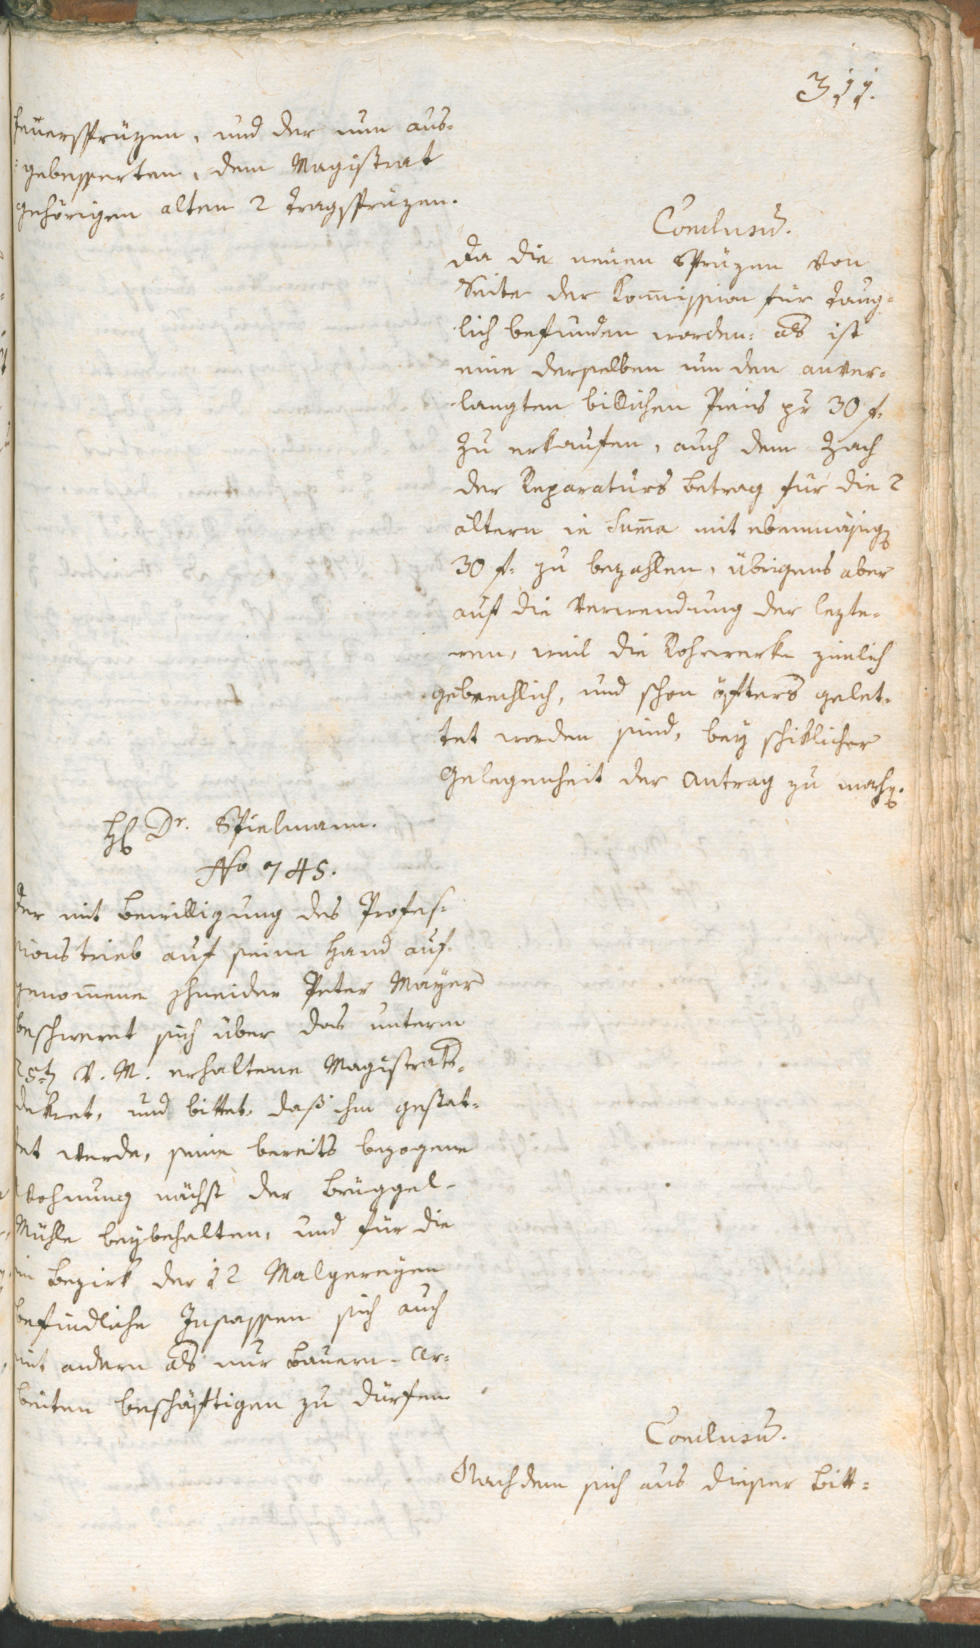 311.
feuersprüzen, und der nun aus-
gebesserten, dem Magistrat
gehörigen alten 2 Tragsprüzen.
Conclusum.
Da die neüen Sprüzen von
Seite der Kom̅ission für Taug-
lich befunden worden: als ist
eine derselben um den anver-
langten billichen Preis pr 30 f.
zu erkaufen, auch dem Zach
der Reparaturs betrag für die 2
ältern in Sum̅a mit ebenmäsigen
30 f. zu bezahlen, übrigens aber
auf die Verwendung der lezte-
ren, weil die Rohrwerke zimlich
gebrechlich, und schon öfters gelet-
tet worden sind, bey schiklicher
Gelegenheit der Antrag zu machen.
H. Dr. Spielmann.
No 745.
Der mit Bewilligung des Profes-
sionstrieb auf seine Hand auf-
genom̅ene Schneider Peter Mayer
beschweret sich über das unterm
25ten v. M. erhaltene Magistrats-
dekret, und bittet, daß ihm gestat-
tet werde, seine bereits bezogene
Wohnung nächst der Brüggel-
Mühle beybehalten, und für die
im Bezirk der 12 Malgereyen
befindliche Insassen sich auch
mit andern als nur Bauern-Ar-
beiten beschäftigen zu dürfen
Conclusum.
Nachdem sich aus dieser Bitt-